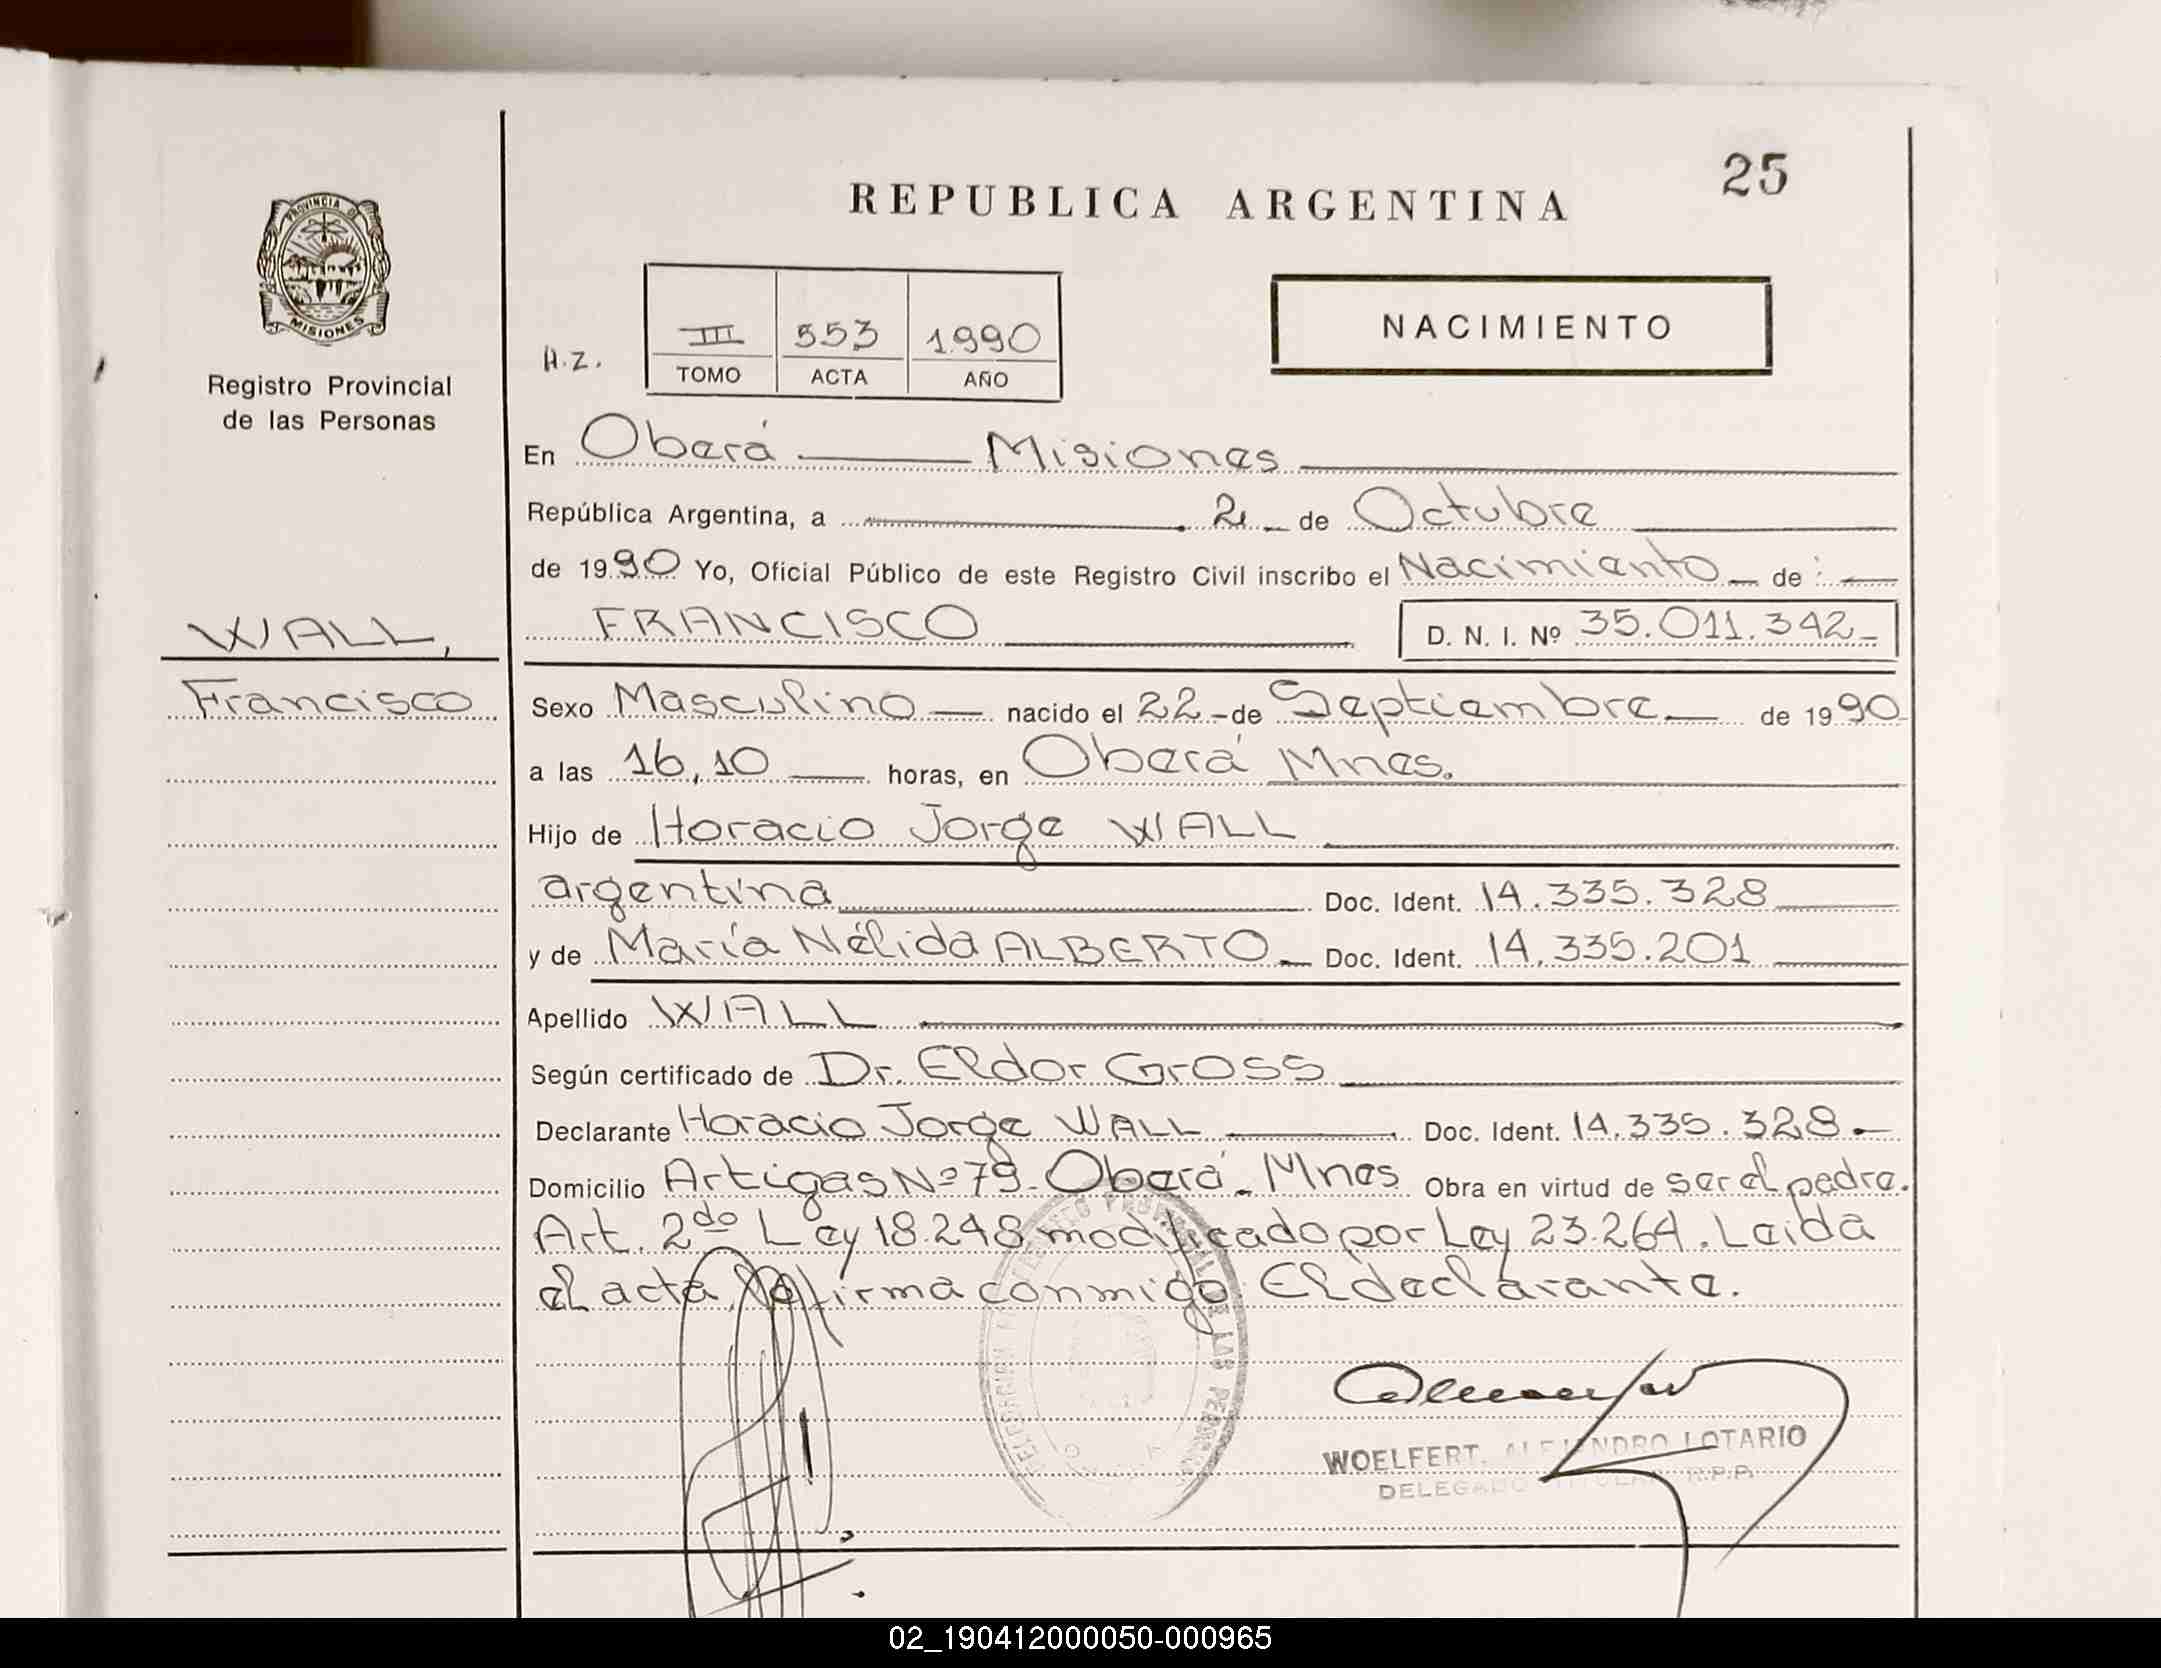 25
REPUBLICA ARGENTINA
PROVINCIA DE
MISIONES
Registro Provincial
de las Personas
NACIMIENTO
H.Z.
III 553 1990
TOMO ACTA AÑO
En Oberá Misiones
República Argentina, a 2 de Octubre
de 1990 Yo, Oficial Público de este Registro Civil inscribo el Nacimiento de:
WALL,
FRANCISCO D. N. I. Nº 35.011.342
Francisco
Sexo Masculino nacido el 22 de Septiembre de 1990
a las 16,10 horas, en Oberá Mnes.
Hijo de Horacio Jorge WALL
argentina Doc. Ident. 14.335.328
y de María Nélida ALBERTO Doc. Ident. 14.335.201
Apellido WALL
Según certificado de Dr. Eldor Gross
Declarante Horacio Jorge WALL Doc. Ident. 14.335.328
Domicilio Artigas Nº 79 - Oberá - Mnes Obra en virtud de ser el padre.
Art. 2do Ley 18.248 modificado por Ley 23.264. Leida
el acta, la firma conmigo El declarante.
DE LAS PERSONAS
WOELFERT, ALEJANDRO LOTARIO
DELEGADO TITULAR R.P.P.
02_190412000050-000965